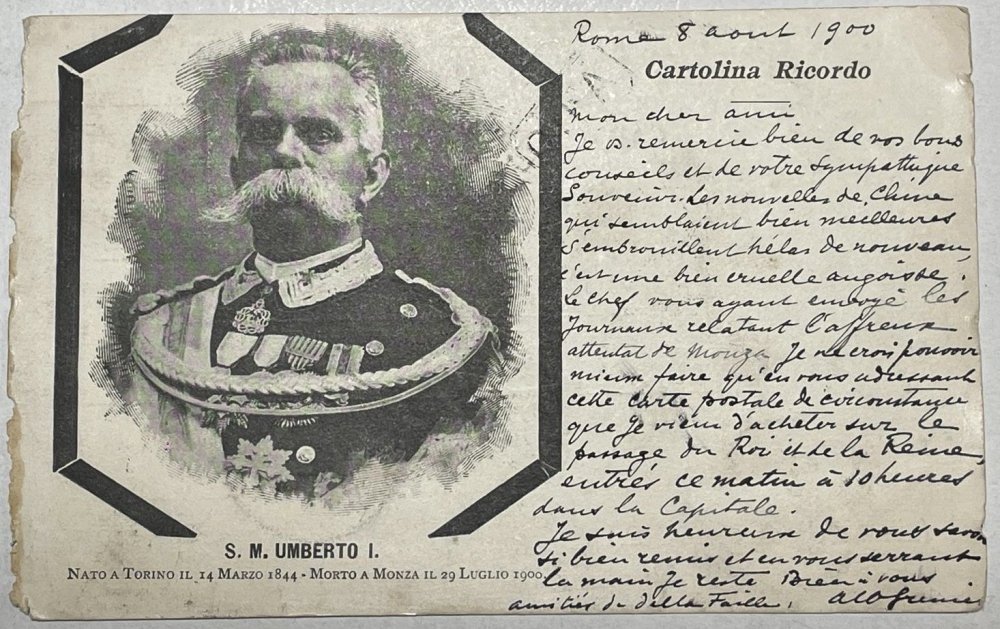 Rome 8 aout 1900
Cartolina Ricordo
Mon cher ami
Je vs. remercie bien de vos bons
conseils et de votre sympathique
Souvenir. Les nouvelles de Chine
qui semblaient bien meilleures
S'embrouillent hélas de nouveau,
c'est une bien cruelle angoisse.
Le chef vous ayant envoyé les
Journaux relatant l'affreux
attentat de Monza Je ne crois pouvoir
mieux faire qu'en vous adressant
cette carte postale de circonstance
que je viens d'acheter sur le
passage du Roi et de la Reine,
entrés ce matin à 10 heures
dans la Capitale.
Je suis heureux de vous savoir
si bien remis et en vous serrant
la main Je reste Bien à vous
amitiés de della Faille.
S. M. UMBERTO I.
NATO A TORINO IL 14 MARZO 1844 - MORTO A MONZA IL 29 LUGLIO 1900.